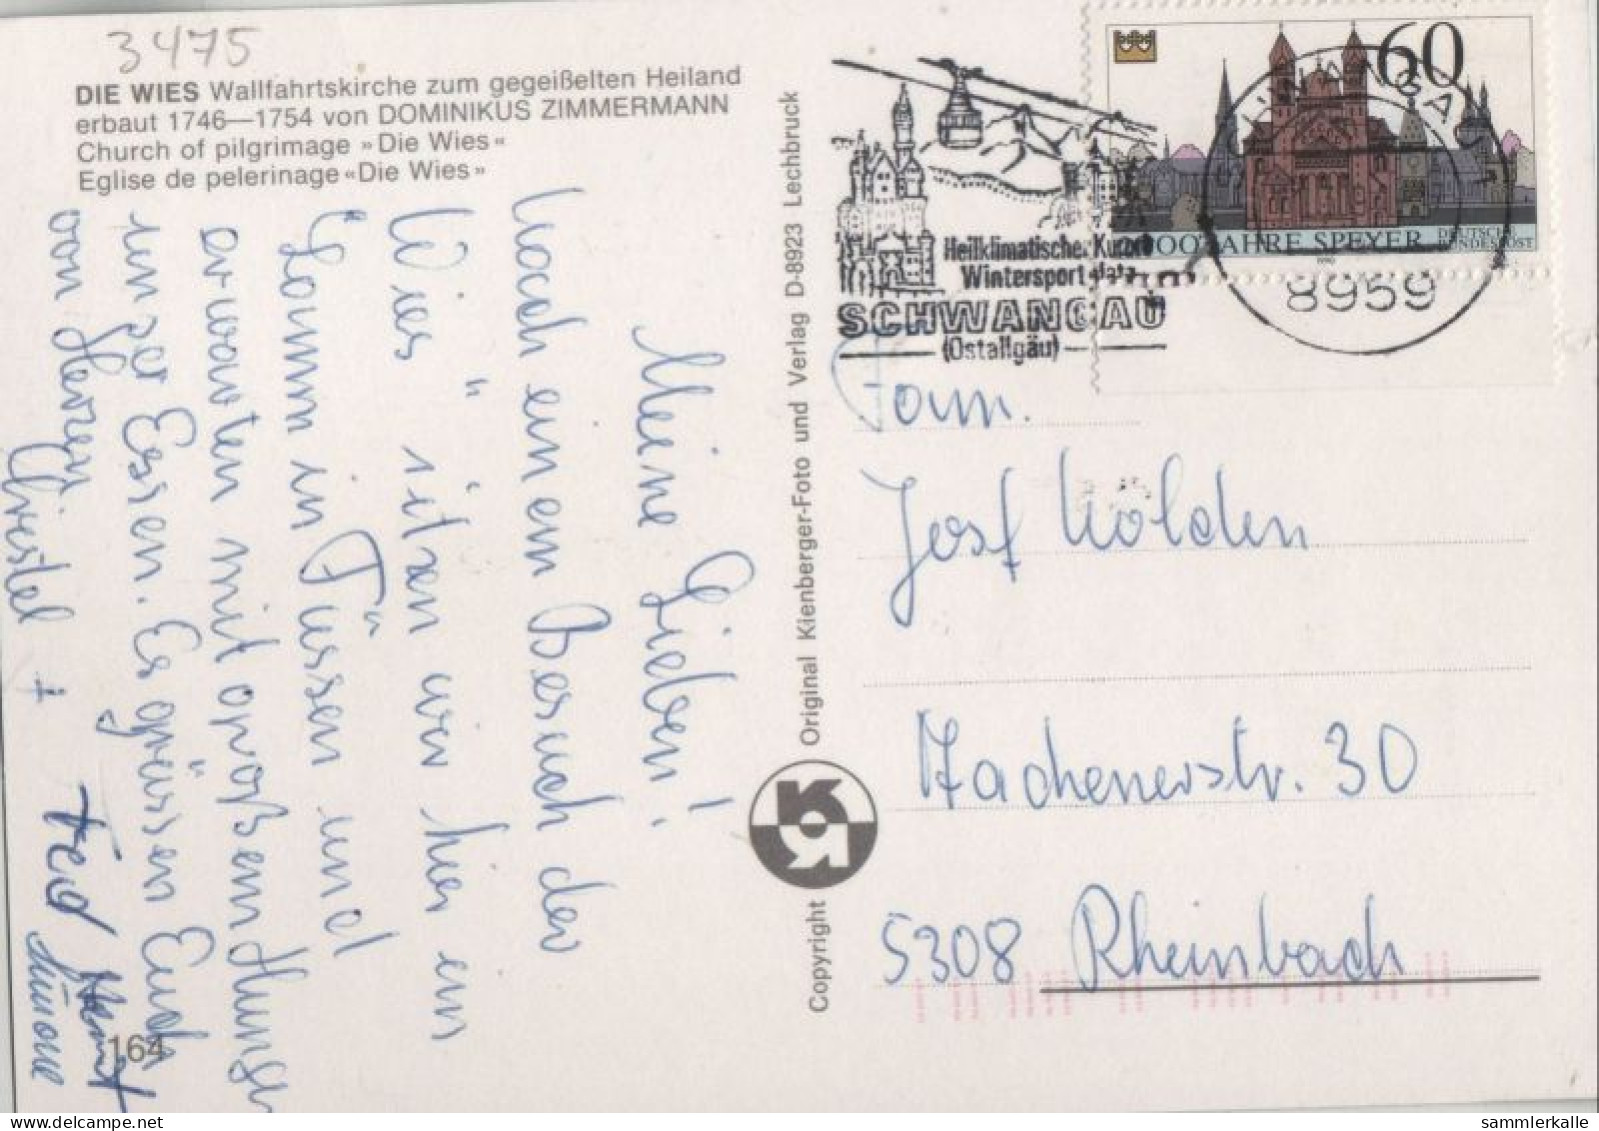 3475
DIE WIES Wallfahrtskirche zum gegeißelten Heiland
erbaut 1746—1754 von DOMINIKUS ZIMMERMANN
Church of pilgrimage »Die Wies«
Eglise de pelerinage «Die Wies»
Meine Lieben!
Nach einem Besuch der
"Wies" sitzen wir hier en
in Füssen und
erwarten mit großem Hunger
unser Essen. Es grüssen Euch
von Herzen
Christel +
Simone
164
Copyright
Original Kienberger-Foto und Verlag D-8923 Lechbruck
Heilklimatischer Kurort
Wintersportplatz
SCHWANGAU
(Ostallgäu)
60
2000 JAHRE SPEYER
DEUTSCHE
BUNDESPOST
1990
SCHWANGAU
8959
Fam.
Josf Nölden
Aachenerstr. 30
5308 Rheinbach
sammlerkalle